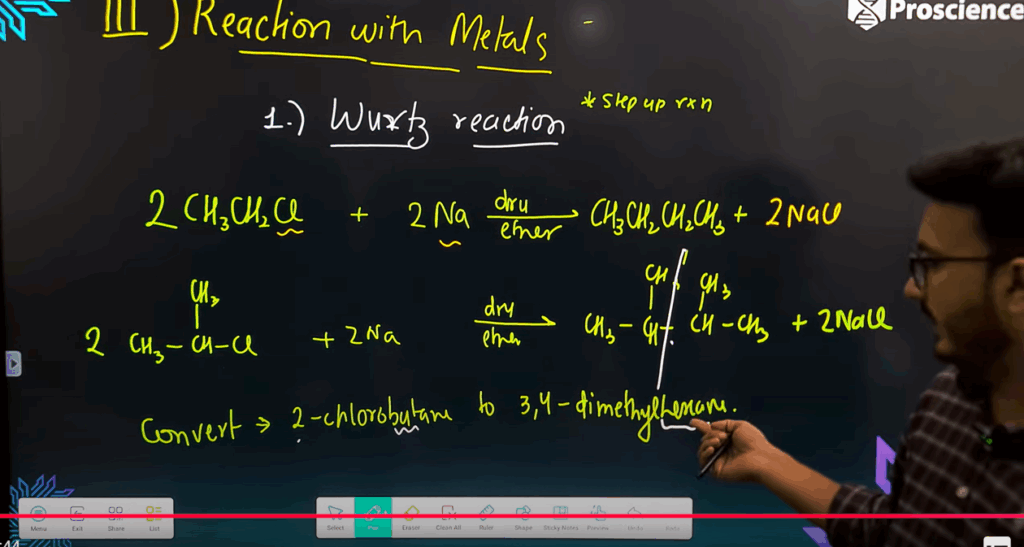 Proscience
III) Reaction with Metals
1.) Wurtz reaction * step up rxn
2 CH3CH2Cl + 2Na dry ether → CH3CH2CH2CH3 + 2NaCl
CH3 CH CH3
2 CH3-CH-Cl + 2Na dry ether → CH3-CH-CH-CH3 + 2NaCl
Convert → 2-chlorobutane to 3,4-dimethylhexane.
Menu Exit Share List Select Pen Eraser Clean All Ruler Shape Sticky Notes Preview Undo Redo
:44